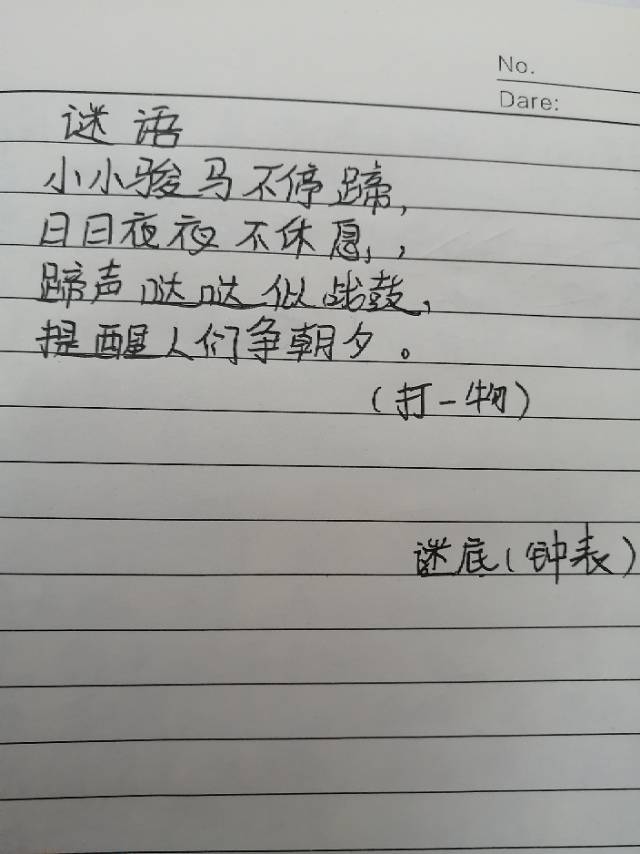 No.
Dare:
谜语
小小骏马不停蹄，
日日夜夜不休息，，
蹄声哒哒似战鼓，
提醒人们争朝夕。
（打一物）
谜底（钟表）